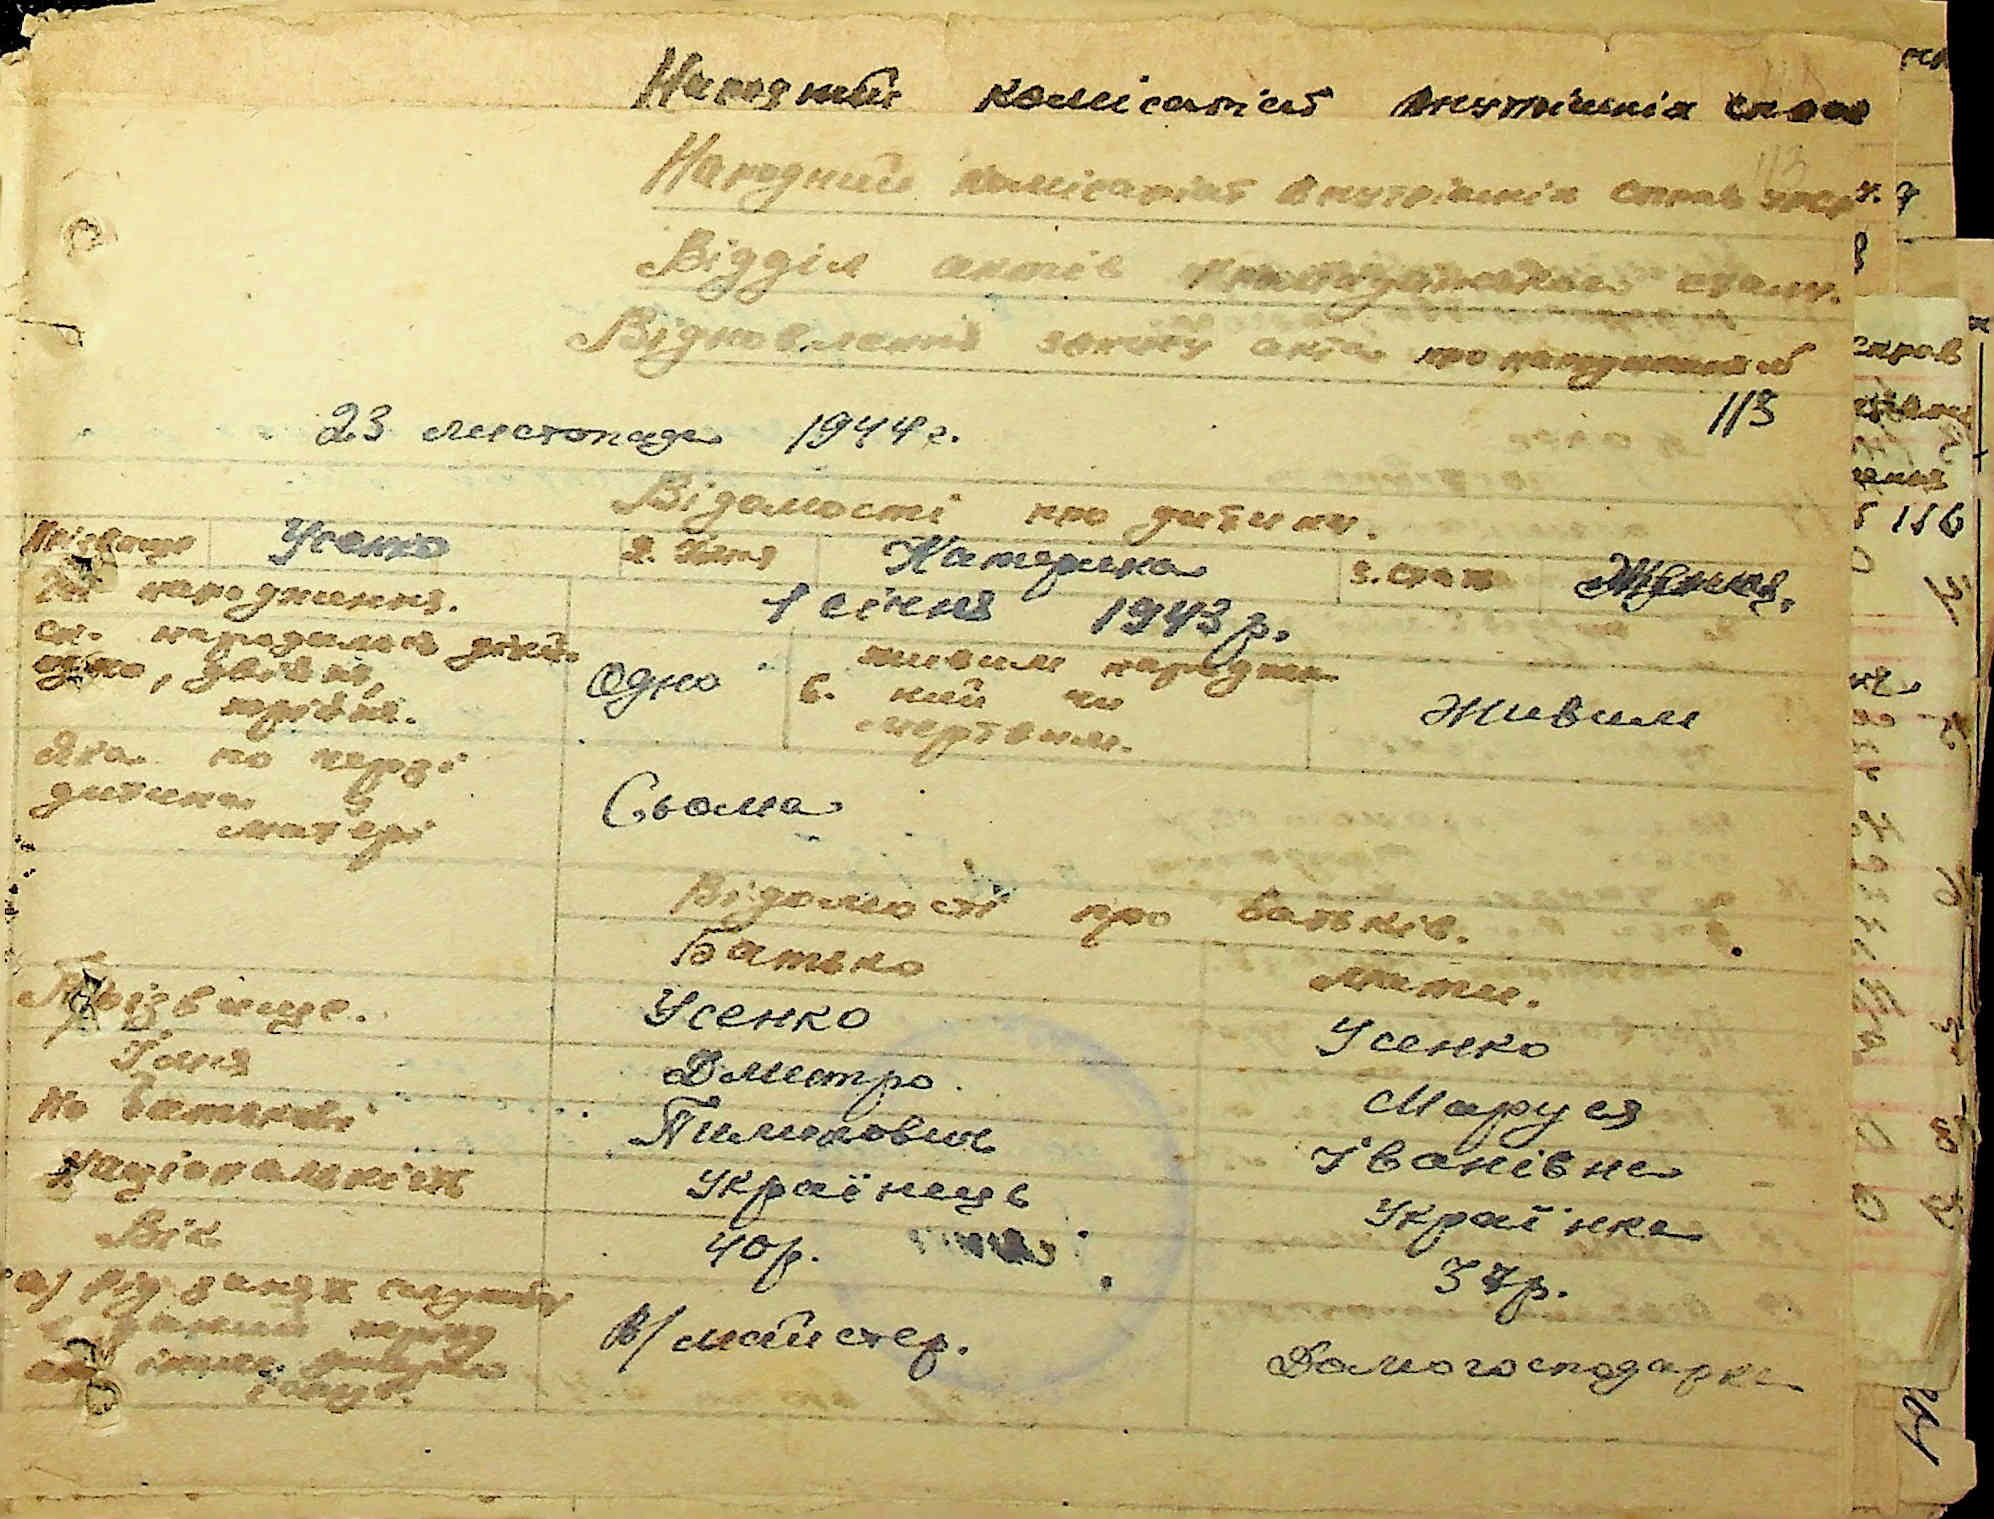 Народний комісаріат внутрішніх справ
Народний комісаріат внутрішніх справ УРСР.
Відділ актів громадянського стану.
Відновлення запису акта про народження №
23 листопада 1944 г. 113
Відомості про дитину.
Прізвище Усенко 2. Імя Катерина 3. стать Жіноча.
народження. 1 січня 1943 р.
народилась
одно, двійня,
трійня. Одно 6. живим народже-
ний чи
мертвим. Живим
Яка по черзі
дитина у
матері Сьома
Відомості про батьків.
Батько Мати.
Прізвище. Усенко Усенко
Імя Дмитро Маруся
По батькові Пимонович Іванівна
Національність Українець Українка
Вік 40 р. 37 р.
В/майстер. Домогосподарка